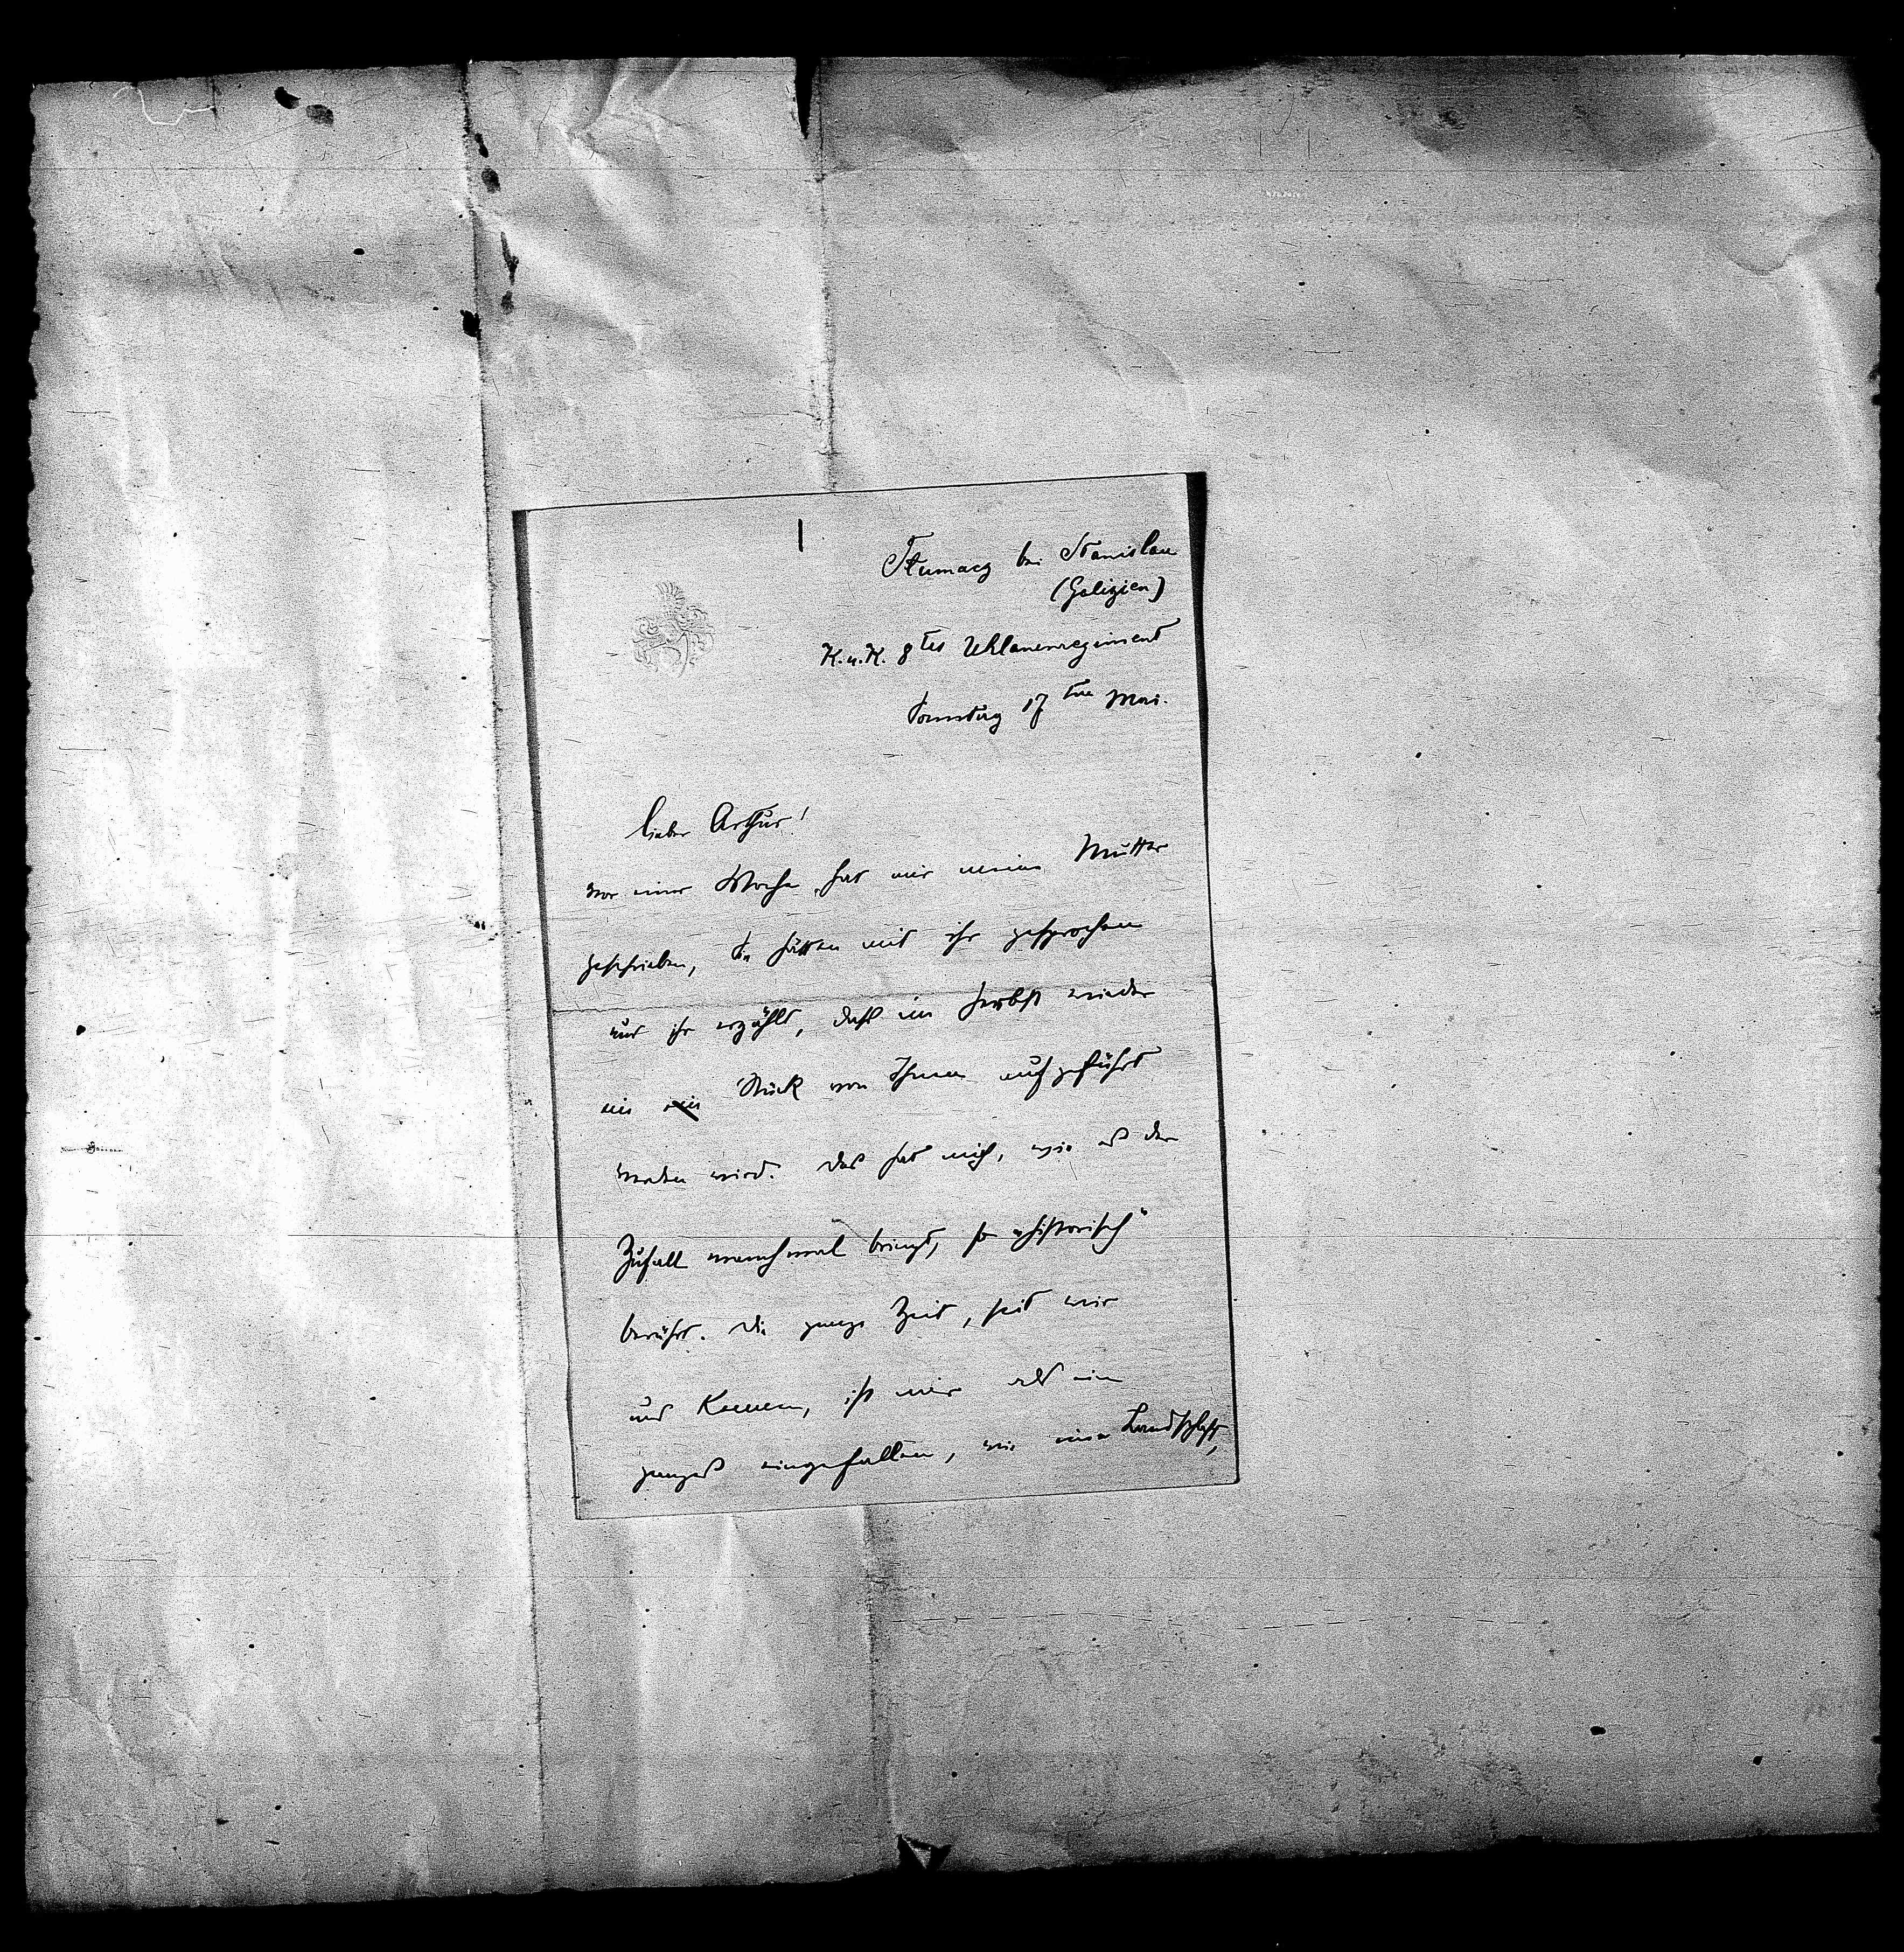 Tlumacz bei Stanislau
(Galizien)
K. u. K. 8tes Uhlanenregiment
Sonntag 17ten Mai.
lieber Arthur!
vor einer Woche hat mir meine Mutter
geschrieben, Sie hätten mit ihr gesprochen
und ihr erzählt, dass im Herbst wieder
ein ein Stück von Ihnen aufgeführt
werden wird. Das hat mich, wie es der
Zufall manchmal bringt, so „historisch“
berührt. Die ganze Zeit, seit wir
uns kennen, ist mir als ein
ganzes eingefallen, wie eine Landschaft,